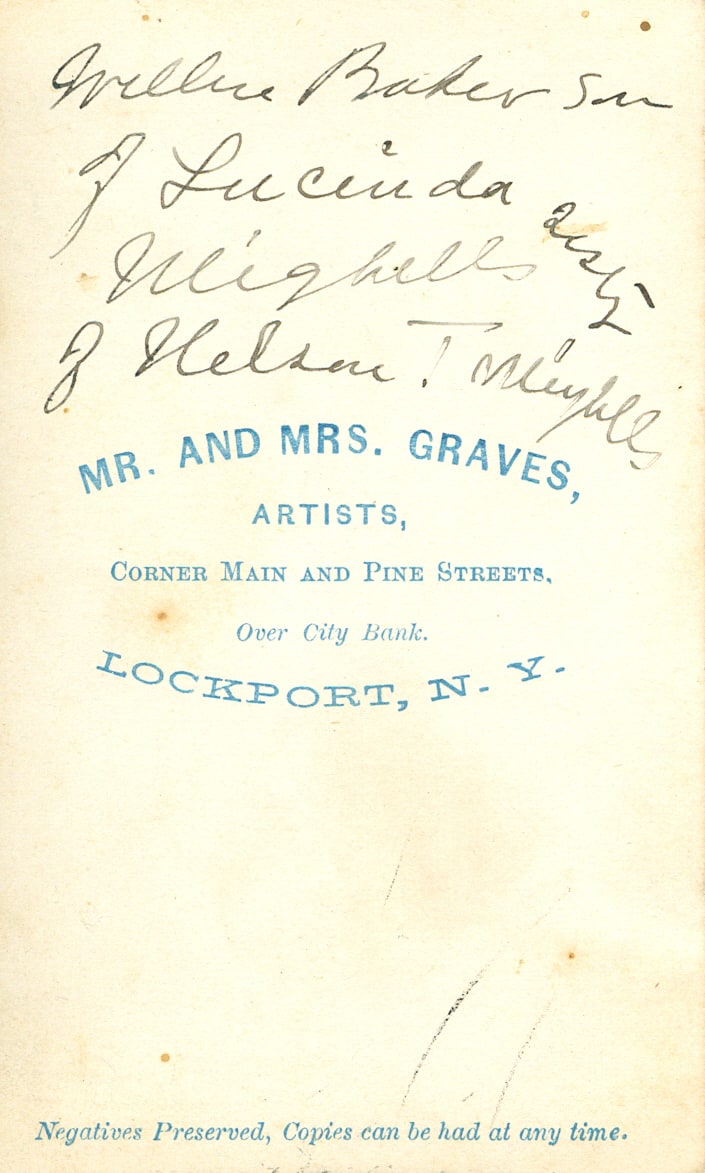 Willie Baker son
of Lucinda
Mighells
of Nelson T Mighells
MR. AND MRS. GRAVES,
ARTISTS,
CORNER MAIN AND PINE STREETS,
Over City Bank.
LOCKPORT, N. Y.
Negatives Preserved, Copies can be had at any time.